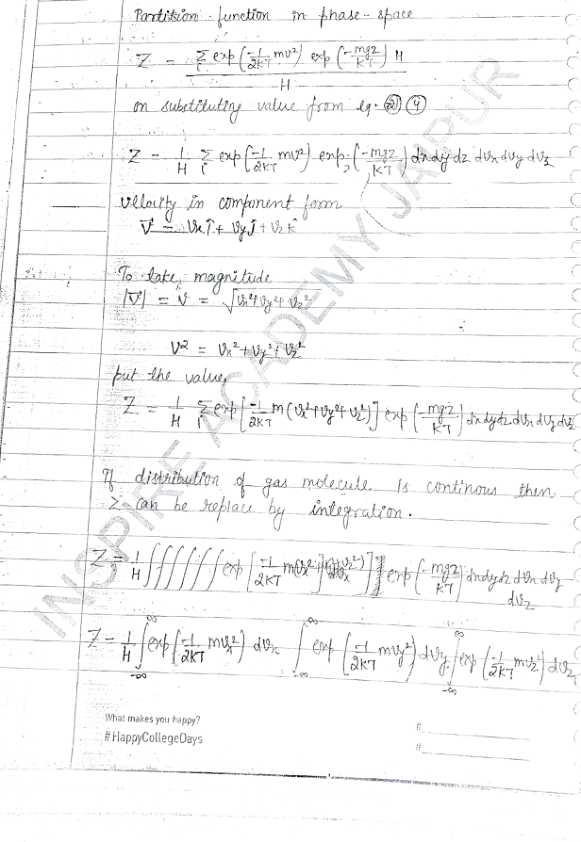 Partition function in phase-space
Z = Σi exp(-1/2KT mv²) exp(-mgz/KT) H
H
on substituting value from eq. ④
Z = 1/H Σi exp(-1/2KT mv²) exp(-mgz/KT) dxdydz dvx dvy dvz
velocity in component form
V⃗ = Vx î + Vy ĵ + Vz k̂
To take, magnitude
|V⃗| = V = √Vx²+Vy²+Vz²
V² = Vx²+Vy²+Vz²
put the value,
Z = 1/H Σi exp[-1/2KT m(Vx²+Vy²+Vz²)] exp(-mgz/KT) dxdydz dvx dvy dvz
If distribution of gas molecule is continous then
Σ can be replace by integration.
Z = 1/H ∫∫∫∫∫∫ exp[-1/2KT m(Vx² +Vz²)] exp(-mgz/KT) dxdydz dvx dvy
dvz
Z = 1/H ∫-∞ ∞ exp(-1/2KT mvx²) dvx ∫-∞ ∞ exp(-1/2KT mvy²) dvy ∫-∞ ∞ exp(-1/2KT mvz²) dvz
What makes you happy?
#HappyCollegeDays
#
#
INSPIRE ACADEMY(JAIPUR